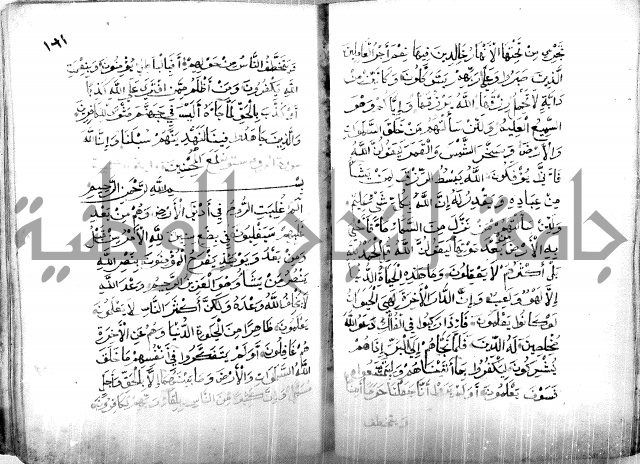 تجري من تحتها الانهار خالدين فيها نعم اجر العاملين
الذين صبروا وعلى ربهم يتوكلون وكاين من
دابة لا تحمل رزقها الله يرزقها واياكم وهو
السميع العليم ولئن سالتهم من خلق السموات
والارض وسخر الشمس والقمر ليقولن الله
فانى يؤفكون الله يبسط الرزق لمن يشا
من عباده ويقدر له ان الله بكل شي عليم
ولئن سالتهم من نزل من السماء ماء فاحيا
به الارض من بعد موتها ليقولن الله قل الحمد لله
بل اكثرهم لا يعقلون وما هذه الحياة الدنيا
الا لهو ولعب وان الدار الاخرة لهي الحيوان
لو كانوا يعلمون فاذا ركبوا في الفلك دعوا الله
مخلصين له الدين فلما نجاهم الى البر اذا هم
يشركون ليكفروا بما اتيناهم وليتمتعوا
فسوف يعلمون اولم يروا انا جعلنا حرما امنا
ويتخطف
ويتخطف الناس من حولهم افبالباطل يؤمنون وبنعمت
الله يكفرون ومن اظلم ممن افترى على الله كذبا
او كذب بالحق لما جاءه اليس في جهنم مثوى للكافرين
والذين جاهدوا فينا لنهدينهم سبلنا وان الله
لمع المحسنين سورة الروم
بسم الله الرحمن الرحيم
الم غلبت الروم في ادنى الارض وهم من بعد
غلبهم سيغلبون في بضع سنين لله الامر من قبل
ومن بعد ويومئذ يفرح المؤمنون بنصر الله
ينصر من يشاء وهو العزيز الرحيم وعد الله
لا يخلف الله وعده ولكن اكثر الناس لا يعلمون
يعلمون ظاهرا من الحيوة الدنيا وهم عن الاخرة
هم غافلون اولم يتفكروا في انفسهم ما خلق
الله السموات والارض وما بينهما الا بالحق واجل
مسمى وان كثيرا من الناس بلقاء ربهم لكافرون
جامعة النجاح الوطنية